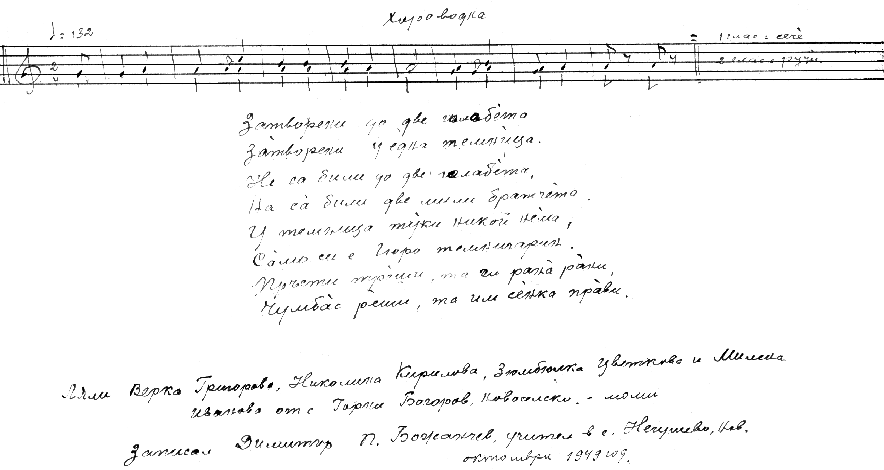 Хороводна
♩ = 132
1 глас: сече
2 глас: ручи
Затворени до две голабèта
Зàтвòрени у една темнѝца.
Не са били до две голабèта,
На сà били две мили братчèта.
У темница тèжки никой нèма,
Сàмо си е Гюро темничарин.
Пръсти трòши, та им ранà рани,
Чумбàс рèши, та им сèнка прàви.
Пяли Верка Григорова, Николина Кирилова, Зюмбюлка Цветкова и Милена
Иванова от с. Горни Богоров, Новоселско. - моми
Записал Димитър П. Божанчев, учител в с. Негушево, Нов.
октомври 1949 год.